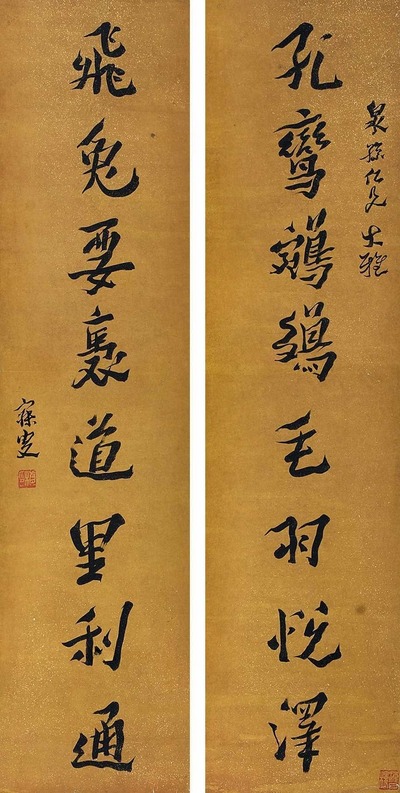 泉孫仁兄大雅
孔鸞毛羽悅澤
飛兔要褭道里利通
寐叟